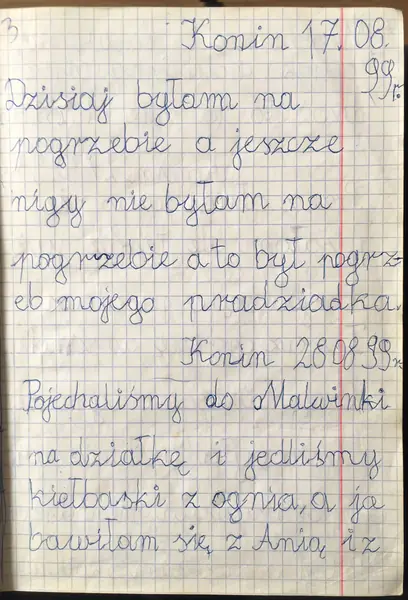 3
Konin 17.08.
99r.
Dzisiaj byłam na
pogrzebie a jeszcze
nigy nie byłam na
pogrzebie a to był pogrz-
eb mojego pradziadka.
Konin 28 08 99r.
Pojechaliśmy do Malwinki
na działkę i jedliśmy
kiełbaski z ognia, a ja
bawiłam się z Anią i z